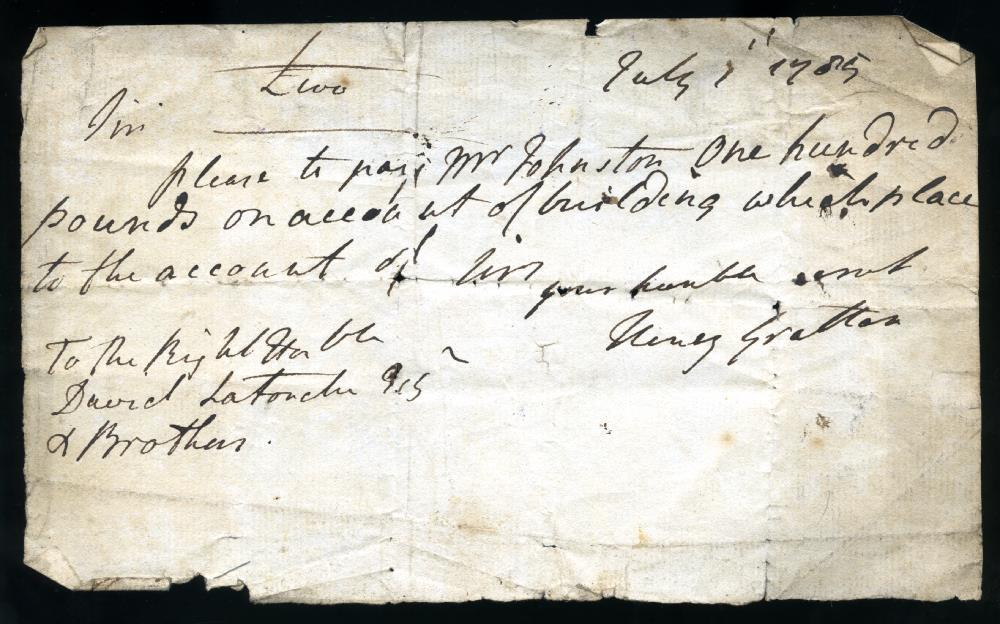 £100
July 1st 1785
Sir
please to pay Mr Johnston One hundred
pounds on account of building which place
to the account of Sir
your humble servt
Henry Grattan
To the Right Honble
David Latouche Esq
& Brothers.